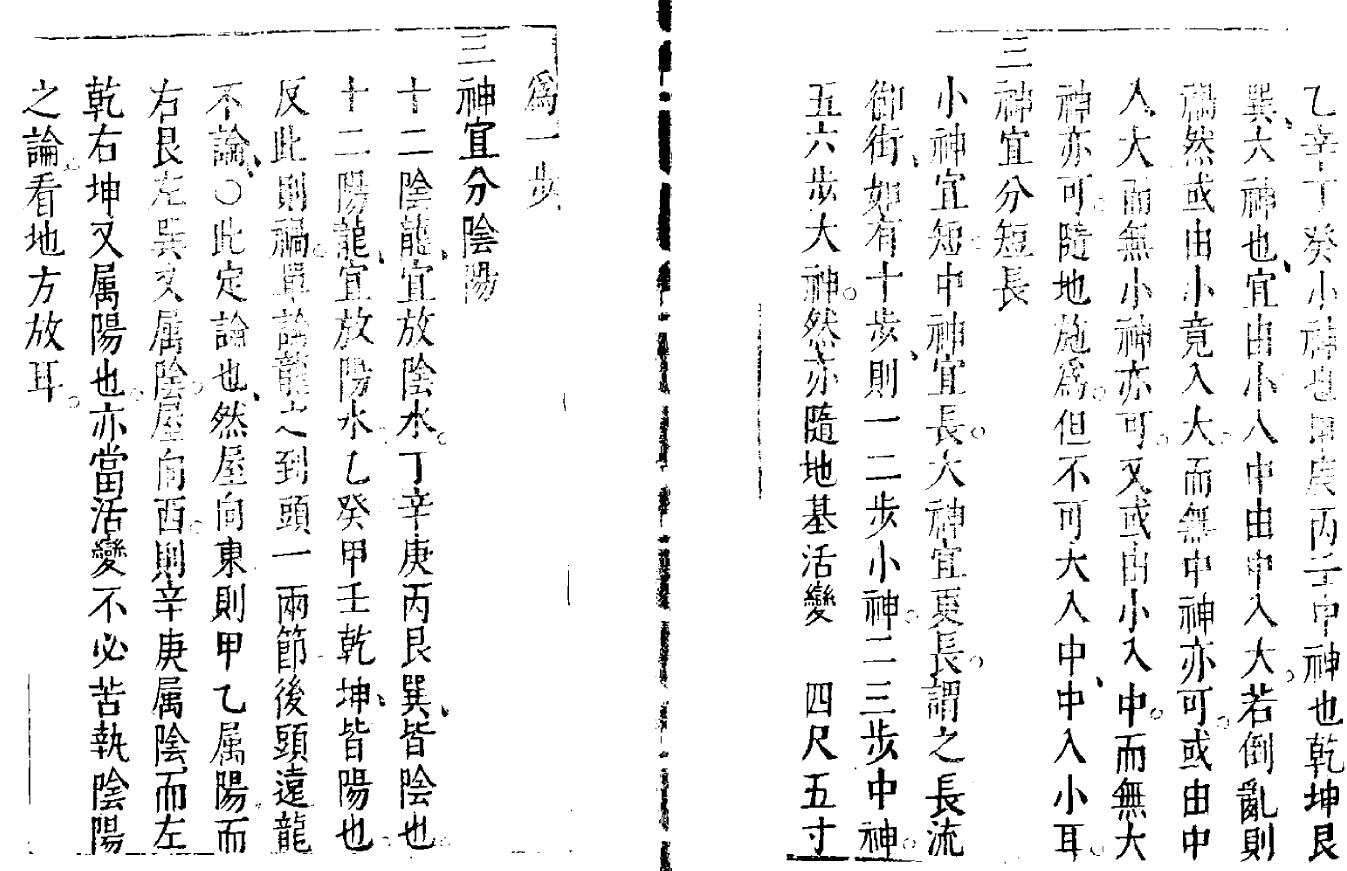 乙辛丁癸小神也甲庚丙壬中神也乾坤艮
巽、六神也、宜由小入中由中入大。若倒亂則
禍然或由小竟入大。而無中神亦可。或由中
入大而無小神亦可。又或由小入中。而無大
神亦可。隨地施爲。但不可大入中、中入小耳。
三神宜分短長
小神宜短。中神宜長。大神宜更長。謂之長流
御街、如有十步、則一二步小神。二三步中神。
五六步大神。然亦隨地基活變　四尺五寸
爲一步
三神宜分陰陽
十二陰龍、宜放陰水。丁辛庚丙艮巽、皆陰也。
十二陽龍、宜放陽水。乙癸甲壬乾坤、皆陽也。
反此則禍。單論龍之到頭一兩節後頭遠龍
不論、○此定論也、然屋向東則甲乙属陽。而
右艮左巽又属陰。屋向西。則辛庚属陰、而左
乾右坤又属陽也。亦當活變不必苦執陰陽
之論。看地方放耳。